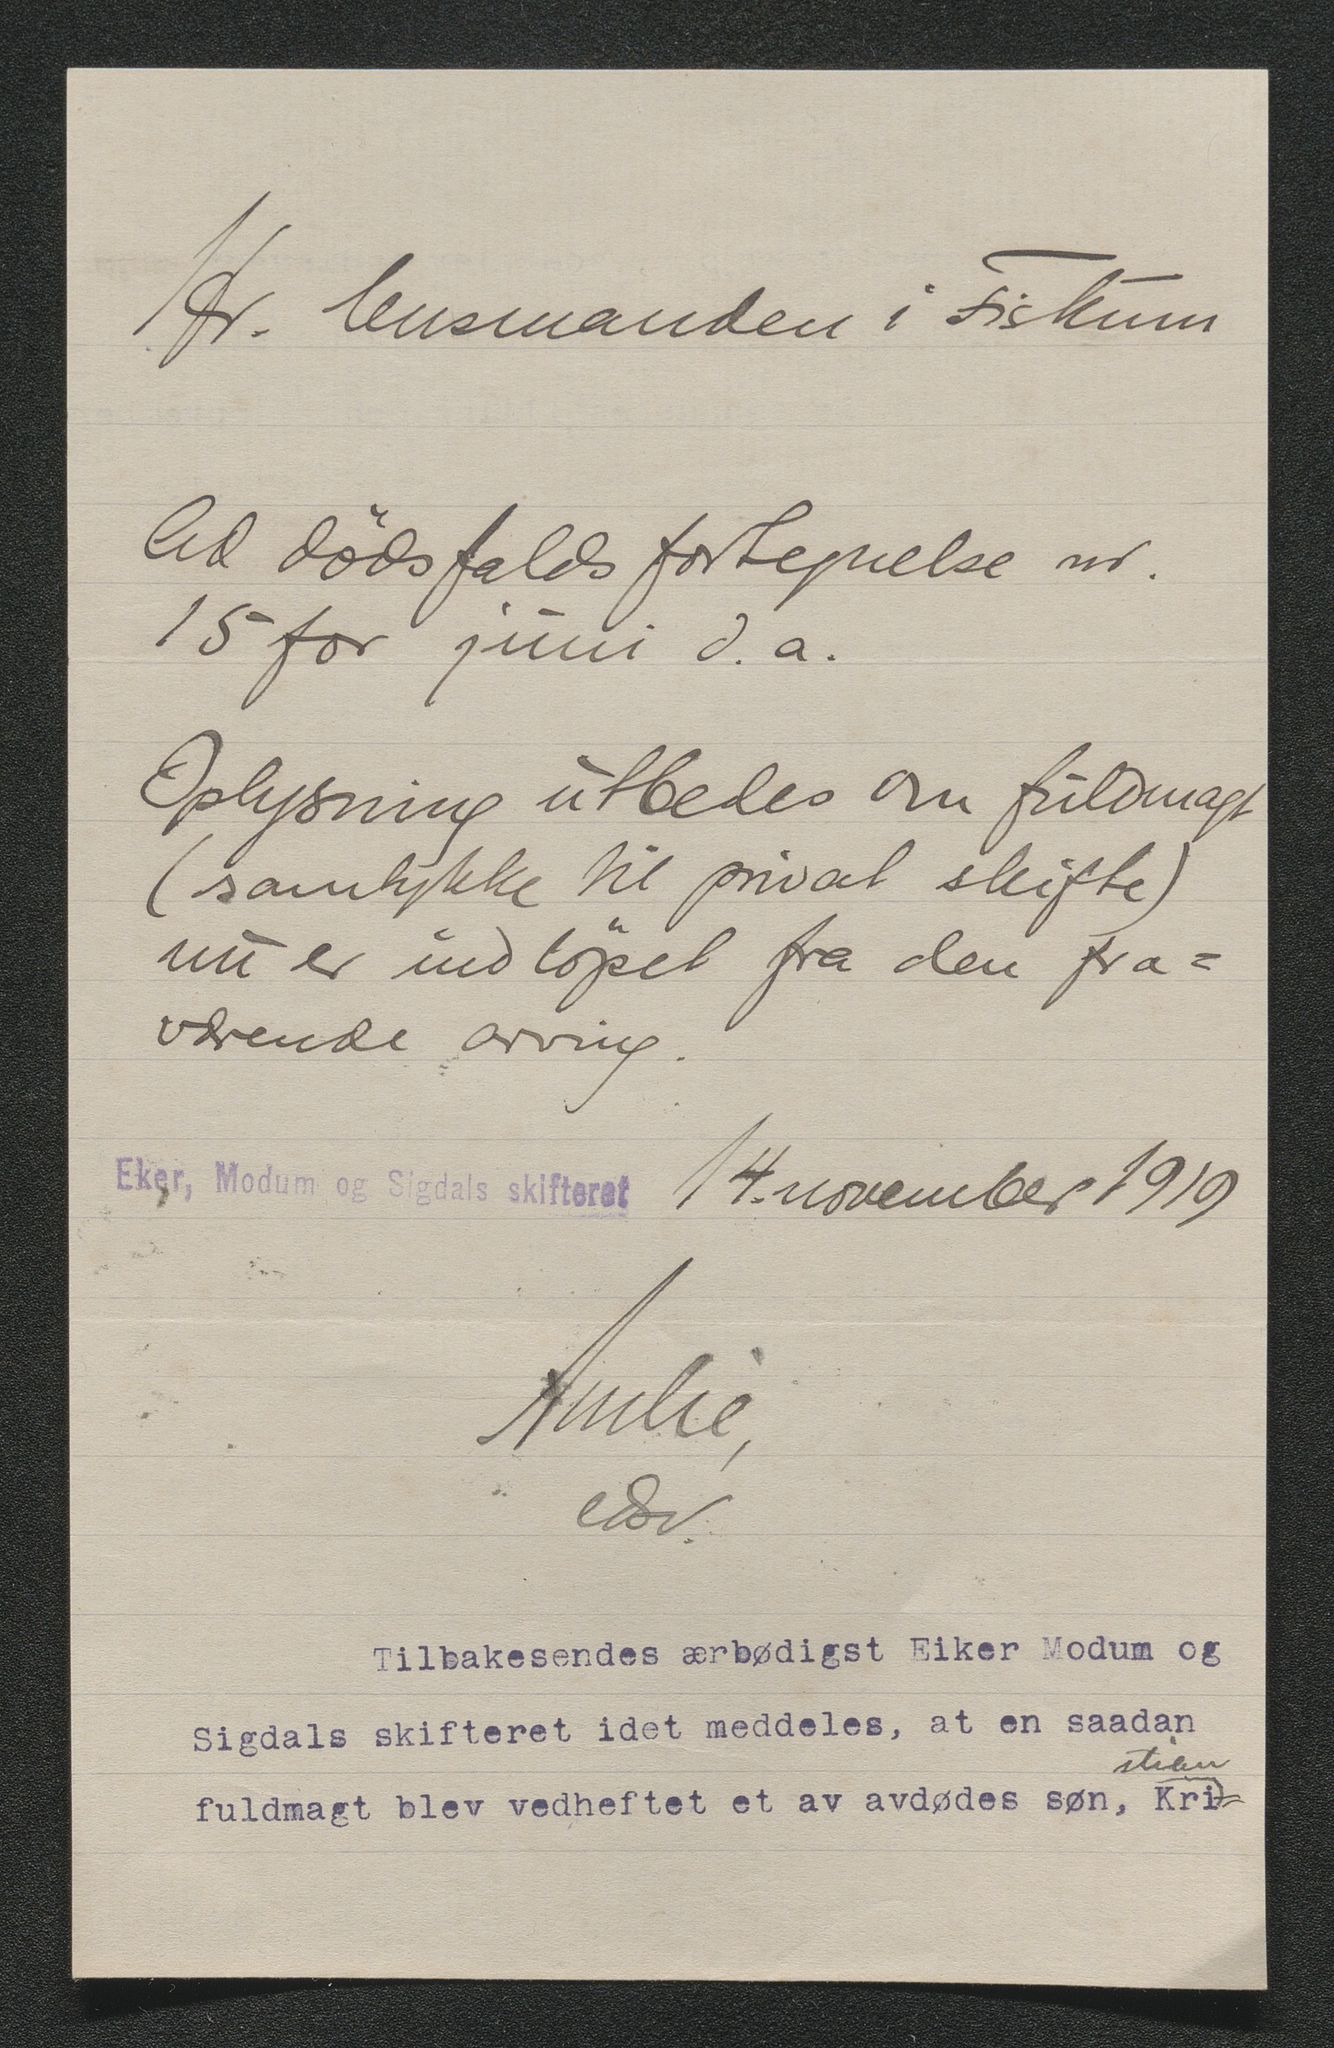 Hr. lensmanden i Fiskum
Ad dödsfaldsfortegnelse nr.
15 for juni d. a.
Oplysning utbedes om fuldmagt
(samtykke til privat skifte)
nu er indlöpet fra den fra-
værende arving.
Eker, Modum og Sigdals skifteret 14. november 1919
edv.
Tilbakesendes ærbødigst Eiker Modum og
Sigdals skifteret idet meddeles, at en saadan
stian
fuldmagt blev vedheftet et av avdødes søn, Kri=